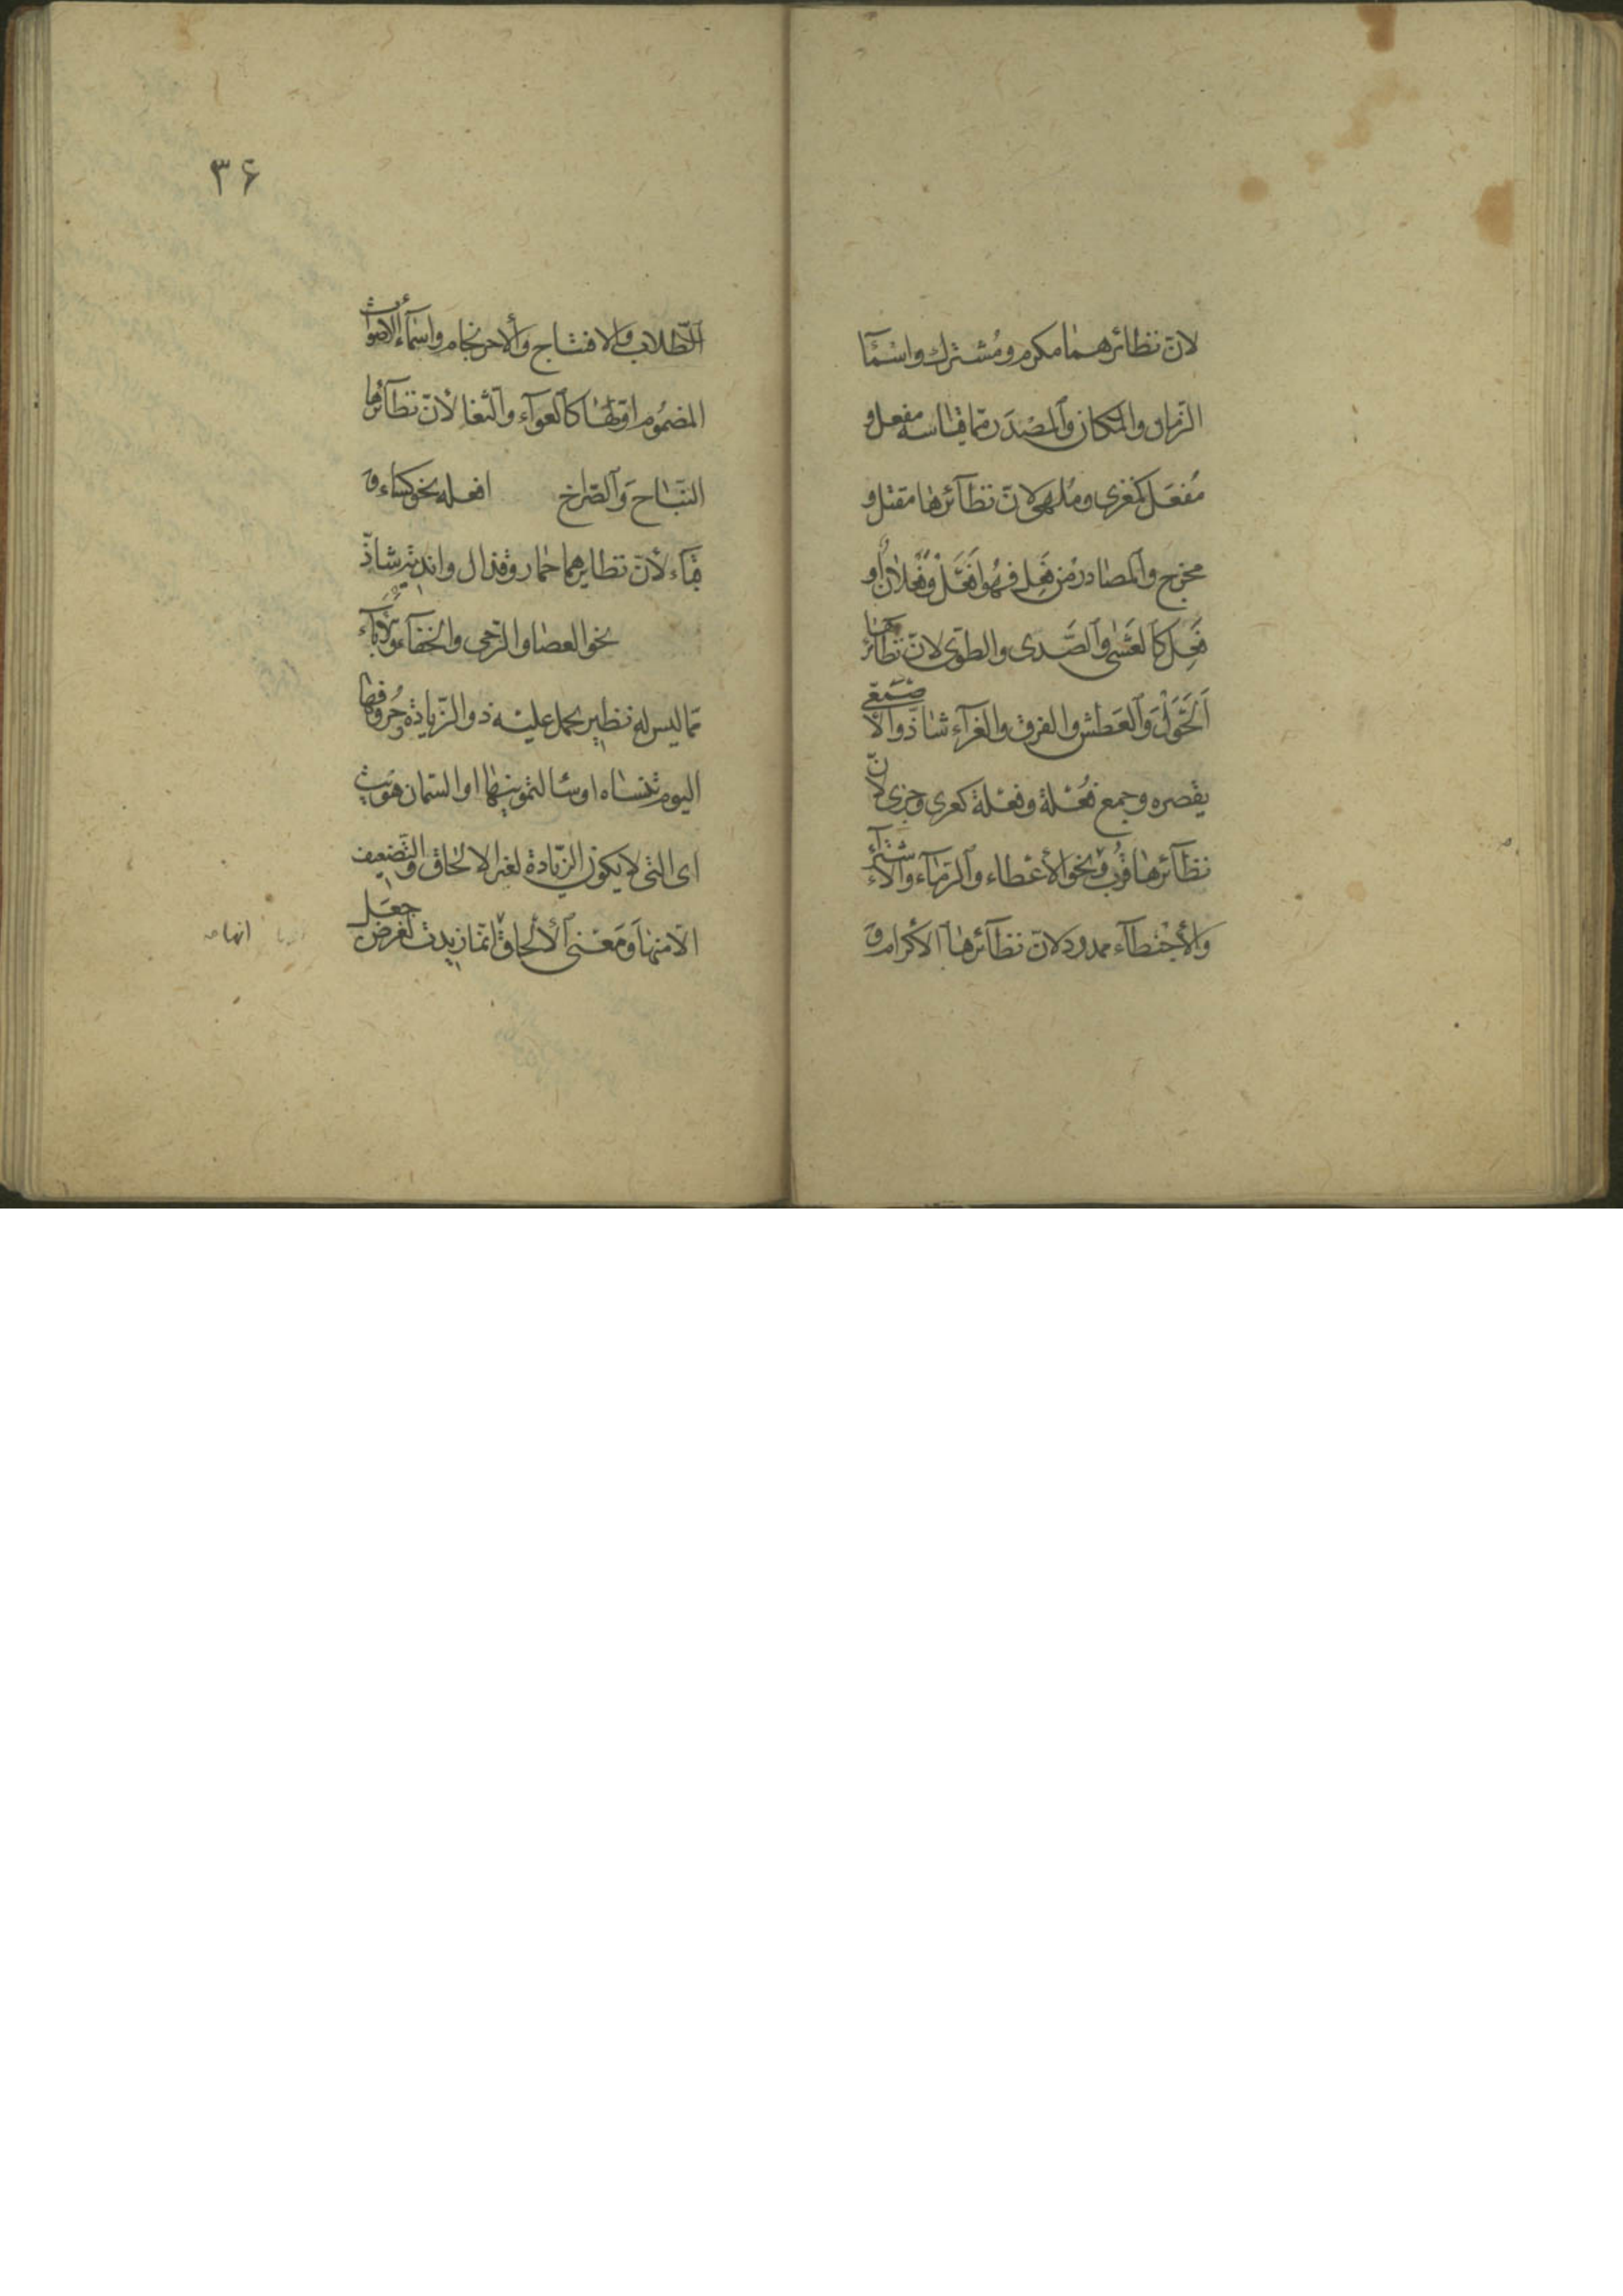 لانّ نظائرهما مكرم ومُشترك واسْمَآ
الزّمان والمكان وٱلمصْدَر ممّا قياسه مفعل و
مُفعَل كمغزى ومُلهى لانّ نظآئرها مقتل و
مخرج وٱلمصادر من فَعِل فهُوا فَعَلْ وفعْلان او
فَعِل كٱلعَشٰى وٱلصَّدى والطوى لانّ نظائرها
اَلحَوَلَ وَٱلعَطش والفرق والغرآء شاذّ والاصْمَعى
يقصره وجمع فُعْلة وفعْلة كعرى وجزى لانّ
نظآئرها قُرب ونحو الأعْطاء وٱلرّماء والأشترآء
وَالأحْبنْطآء ممدود لانّ نظآئرهٰا الاكرام و
ٱلطّلاب وَالافتتاح وَالاحرنجام واسْمآء الاصْوٰات
المضمُوم اوّلها كٱلعوآء وٱلثغا لأنّ نظآئرها
النبّاح وَٱلصّراخ افعله نحو كسٰاء و
قباء لأنّ نظايرهما حمار وقذال واندية شاذّ
نحو العصٰا والرّحى والخفآء والابآء
ممّا ليس له نظير يحمل عليْه ذو الزّيادة حُروفها
اليوم تنساه او سألتمونيها او السّمان هويت
اى التى لا يكون الزّيادة لغير الالحاق والتّضعيف
الّا منها وَمَعْنى ٱلألحاق انّها زيدت لغرض جعَل
انها
٣۶